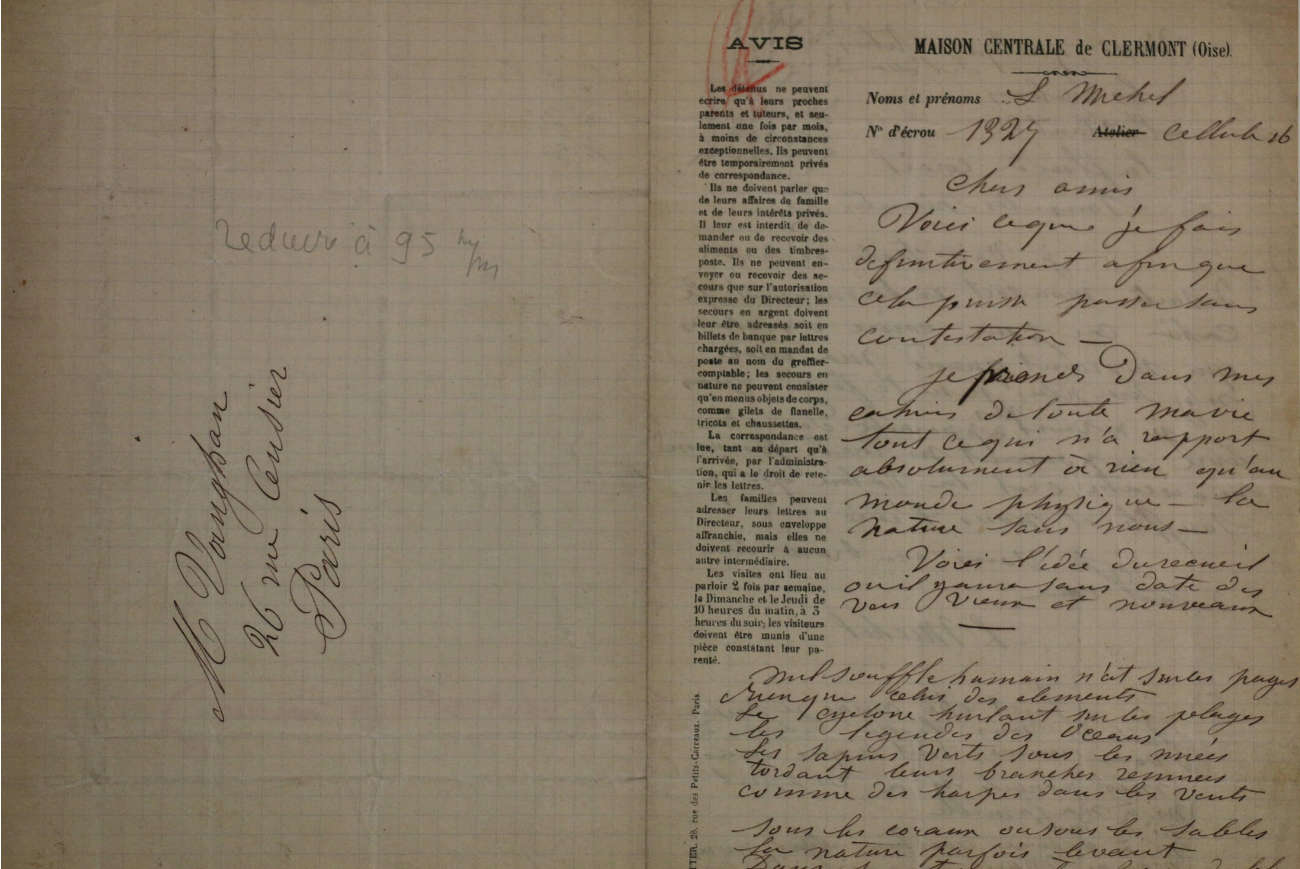 reduire à 95
M Vaughan
26 rue Censier
Paris
AVIS
Les détenus ne peuvent
écrire qu'à leurs proches
parents et tuteurs, et seu-
lement une fois par mois,
à moins de circonstances
exceptionnelles. Ils peuvent
être temporairement privés
de correspondance.
Ils ne doivent parler que
de leurs affaires de famille
et de leurs intérêts privés.
Il leur est interdit de de-
mander ou de recevoir des
aliments ou des timbres-
poste. Ils ne peuvent en-
voyer ou recevoir des se-
cours que sur l'autorisation
expresse du Directeur; les
secours en argent doivent
leur être adressés soit en
billets de banque par lettres
chargées, soit en mandat de
poste au nom du greffier-
comptable; les secours en
nature ne peuvent consister
qu'en menus objets de corps,
comme gilets de flanelle,
tricots et chaussettes.
La correspondance est
lue, tant au départ qu'à
l'arrivée, par l'administra-
tion, qui a le droit de rete-
nir les lettres.
Les familles peuvent
adresser leurs lettres au
Directeur, sous enveloppe
affranchie, mais elles ne
doivent recourir à aucun
autre intermédiaire.
Les visites ont lieu au
parloir 2 fois par semaine,
le Dimanche et le Jeudi de
10 heures du matin, à 3
heures du soir; les visiteurs
doivent être munis d'une
pièce constatant leur pa-
renté.
TIER, 28, rue des Petits-Carreaux, Paris
MAISON CENTRALE de CLERMONT (Oise).
Noms et prénoms L Michel
Nº d'écrou 1327 Atelier cellule 16
chers amis
Voici ce que je fais
definitivement afin que
cela puisse passer sans
contestation —
je prends Dans mes
cahiers de toute ma vie
tout ce qui n'a rapport
absolument à rien qu'au
monde physique — la
nature sans nous —
Voici l'idée du recueil
ou il y aura sans date des
vers vieux et nouveaux
nul souffle humain n'est sur les pages
rien que celui des elements
le cyclone hurlant sur les plages
les legendes des Oceans
les sapins verts sous les nuées
tordant leurs branches remuees
comme des harpes dans les vents
sous les coraux ou sous les sables
la nature parfois levant